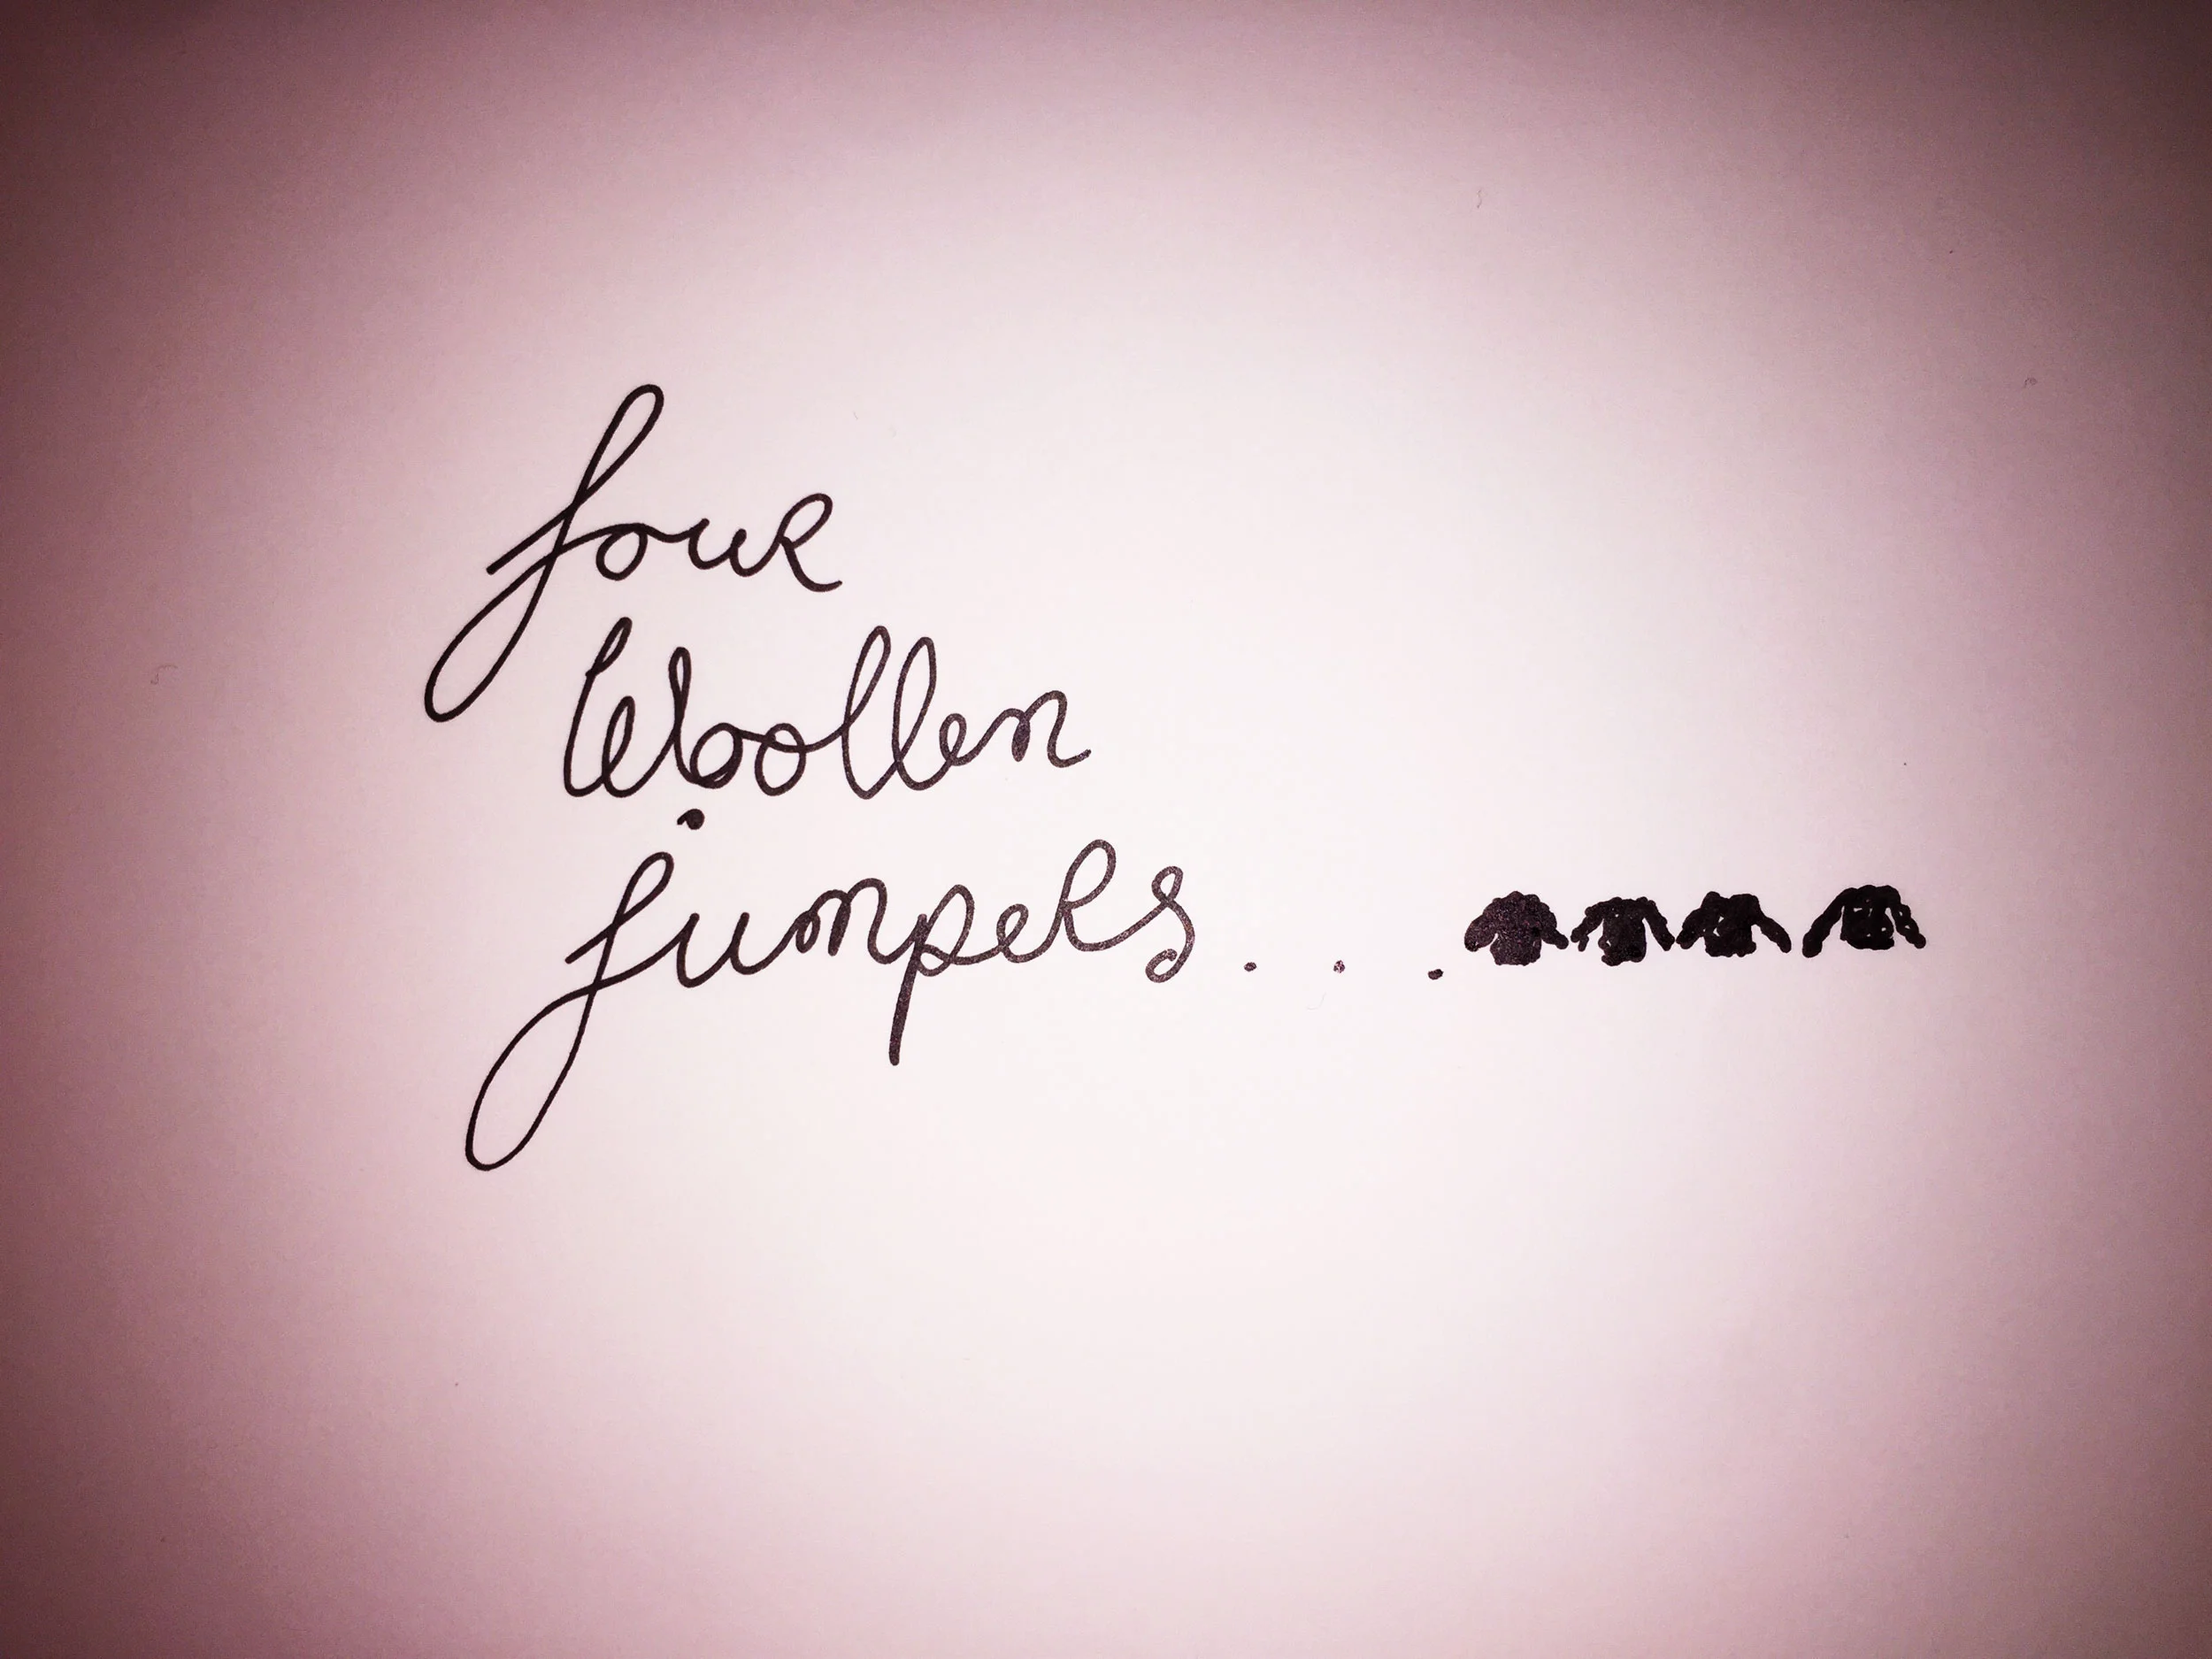 four
Woollen
jumpers...